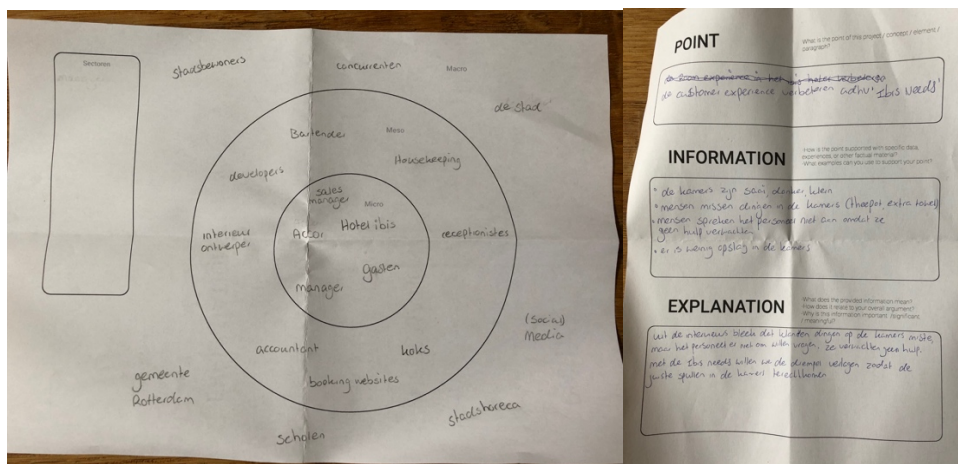 Sectoren
stadsbewoners
concurrenten
Macro
de stad
Bartender
Meso
Housekeeping
developers
sales
manager
Micro
Hotel ibis
interieur
ontwerper
Accor
receptionistes
gasten
manager
(social)
Media
accountant
koks
gemeente
Rotterdam
booking websites
stadshoreca
scholen
POINT
What is the point of this project / concept / element /
paragraph?
de customer experience verbeteren adhv 'Ibis Needs'
INFORMATION
How is the point supported with specific data,
experiences, or other factual material?
What examples can you use to support your point?
• de kamers zijn saai donker, klein
• mensen missen dingen in de kamers (theepot, extra towel)
• mensen spreken het personeel niet aan omdat ze
geen hulp verwachten
• er is weinig opslag in de kamers
EXPLANATION
What does the provided information mean?
How does it relate to your overall argument?
Why is this information important (significant
/ meaningful)?
uit de interviews bleek dat klanten dingen op de kamers miste,
maar het personeel er niet om willen vragen, ze verwachten geen hulp.
met de Ibis needs willen we de drempel verlagen zodat de
juiste spullen in de kamers terechtkomen